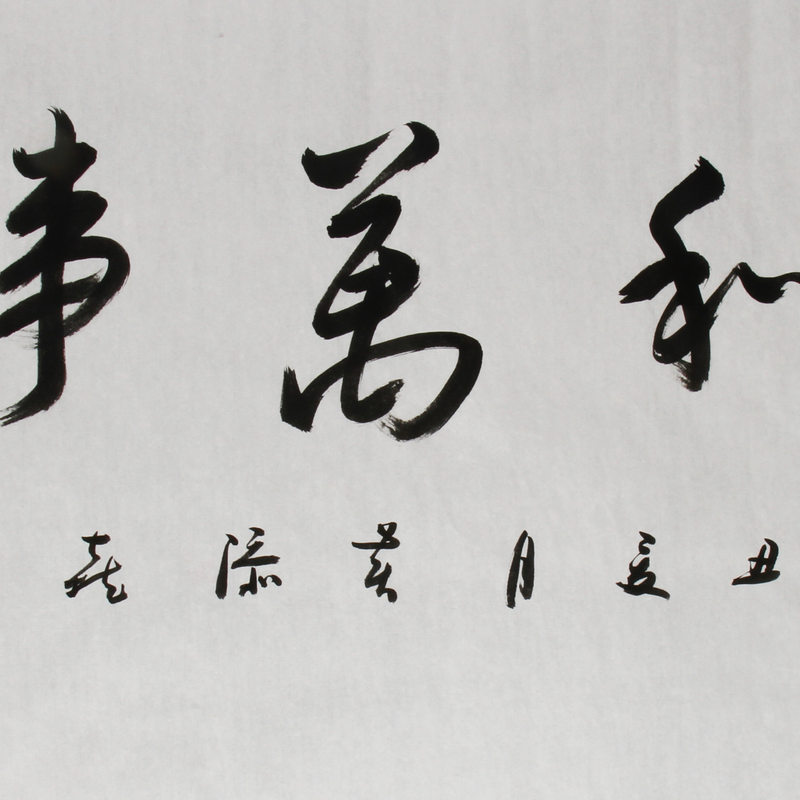 和萬事
丑夏月黄添喜